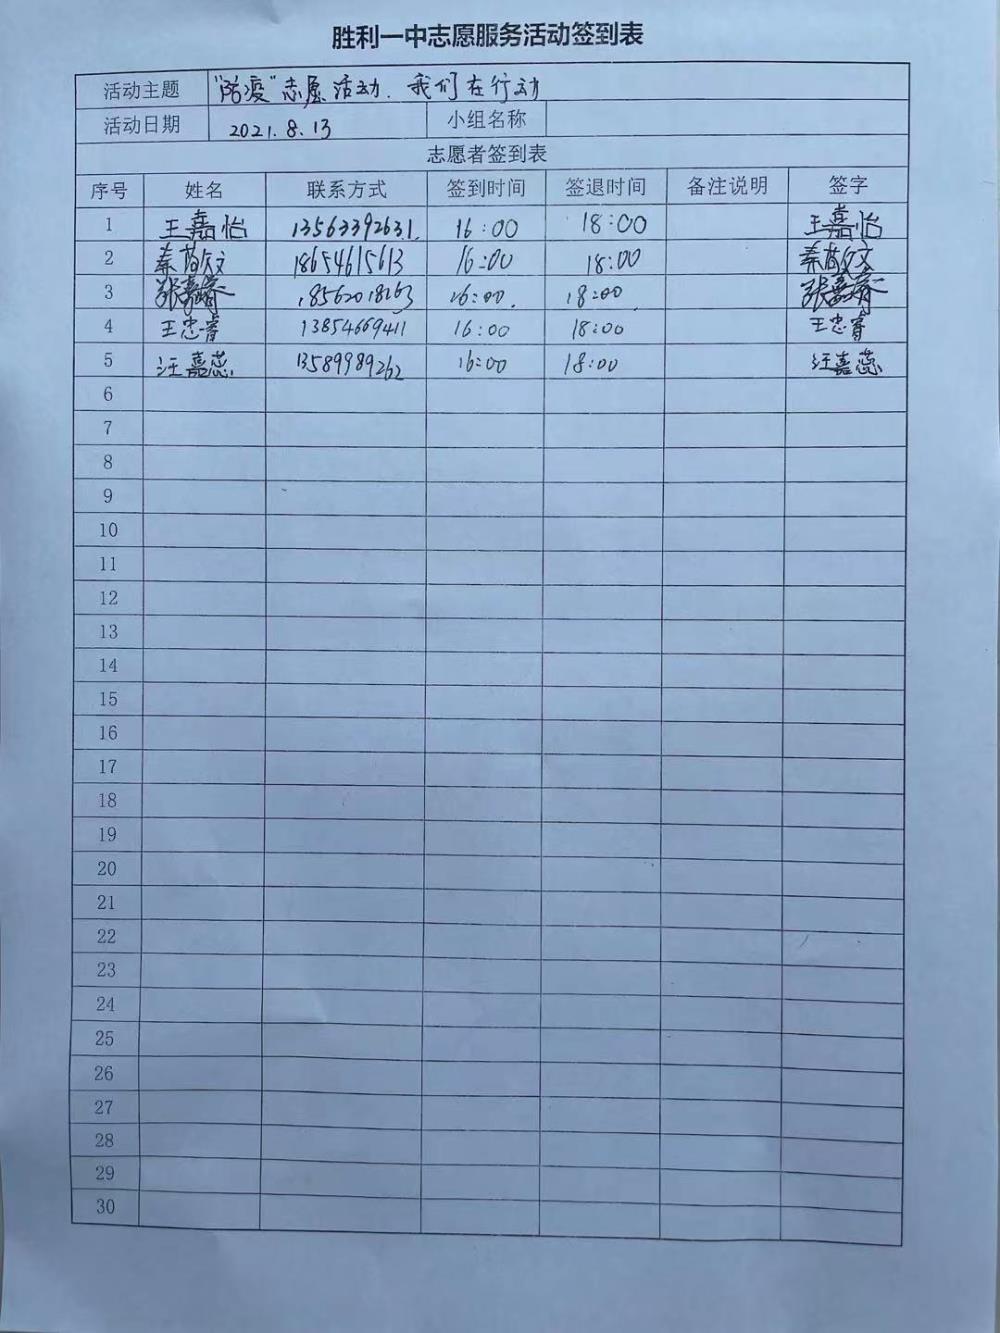 胜利一中志愿服务活动签到表
活动主题 "防疫"志愿活动.我们在行动
活动日期 2021.8.13 小组名称
志愿者签到表
序号 姓名 联系方式 签到时间 签退时间 备注说明 签字
1 王嘉怡 13563392631 16:00 18:00 王嘉怡
2 18654615613 16:00 18:00
3 18562018263 16:00 18:00
4 王忠睿 13854669411 16:00 18:00 王忠睿
5 汪嘉蕊 13589989262 16:00 18:00 汪嘉蕊
6
7
8
9
10
11
12
13
14
15
16
17
18
19
20
21
22
23
24
25
26
27
28
29
30